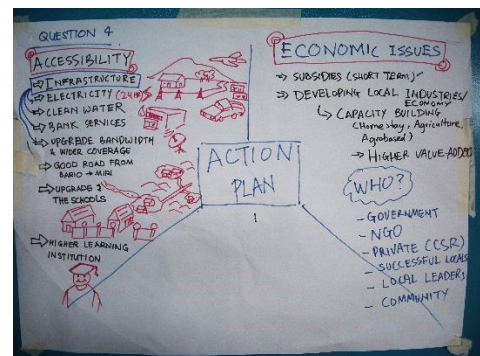 QUESTION 4
ACCESSIBILITY
INFRASTRUCTURE
ELECTRICITY (24HR)
CLEAN WATER
BANK SERVICES
UPGRADE BANDWIDTH
& WIDER COVERAGE
GOOD ROAD FROM
BARIO → MIRI
UPGRADE
THE SCHOOLS
HIGHER LEARNING
INSTITUTION
ACTION
PLAN
1
ECONOMIC ISSUES
⇒ SUBSIDIES (SHORT TERM)
⇒ DEVELOPING LOCAL INDUSTRIES/
ECONOMY
↳ CAPACITY BUILDING
(Homestay, Agriculture,
Agrobased)
→ HIGHER VALUE-ADDED
WHO?
- GOVERNMENT
- NGO
- PRIVATE (CSR)
- SUCCESSFUL LOCALS
- LOCAL LEADERS
- COMMUNITY